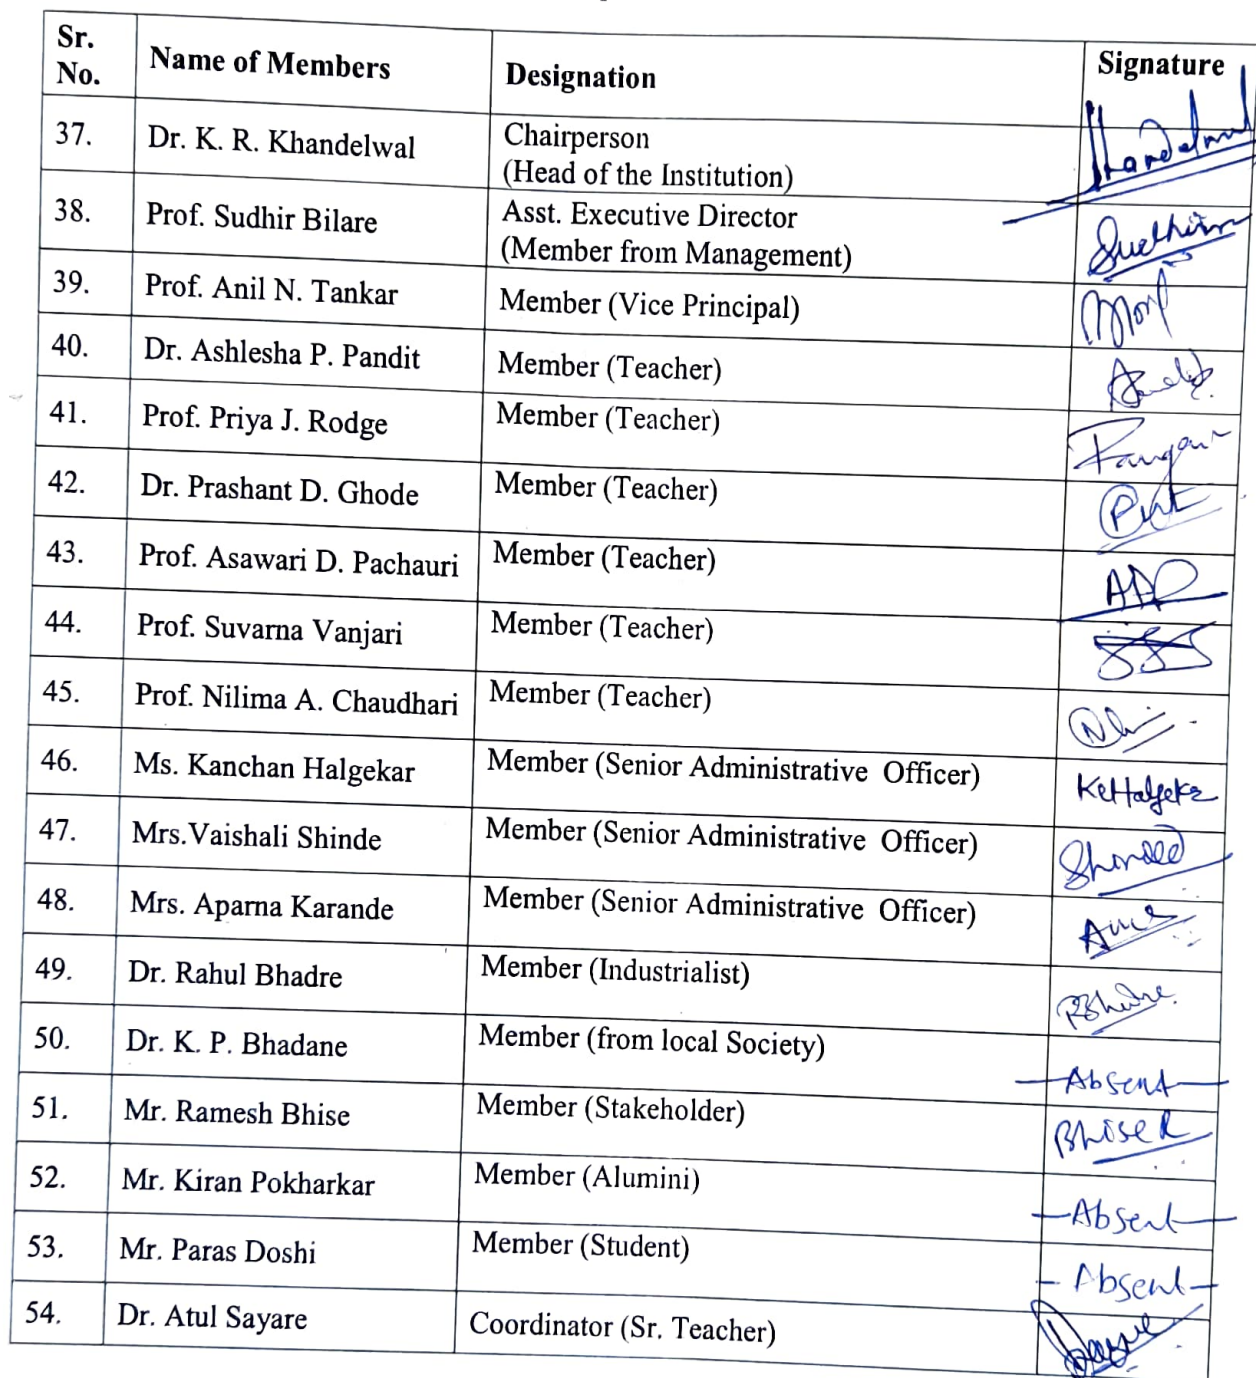 Sr. No. Name of Members Designation Signature
37. Dr. K. R. Khandelwal Chairperson
(Head of the Institution)
38. Prof. Sudhir Bilare Asst. Executive Director
(Member from Management)
39. Prof. Anil N. Tankar Member (Vice Principal)
40. Dr. Ashlesha P. Pandit Member (Teacher)
41. Prof. Priya J. Rodge Member (Teacher)
42. Dr. Prashant D. Ghode Member (Teacher)
43. Prof. Asawari D. Pachauri Member (Teacher) ADP
44. Prof. Suvarna Vanjari Member (Teacher)
45. Prof. Nilima A. Chaudhari Member (Teacher)
46. Ms. Kanchan Halgekar Member (Senior Administrative Officer)
47. Mrs.Vaishali Shinde Member (Senior Administrative Officer)
48. Mrs. Aparna Karande Member (Senior Administrative Officer)
49. Dr. Rahul Bhadre Member (Industrialist)
50. Dr. K. P. Bhadane Member (from local Society) -Absent-
51. Mr. Ramesh Bhise Member (Stakeholder) Bhise R
52. Mr. Kiran Pokharkar Member (Alumini) -Absent-
53. Mr. Paras Doshi Member (Student) - Absent -
54. Dr. Atul Sayare Coordinator (Sr. Teacher)